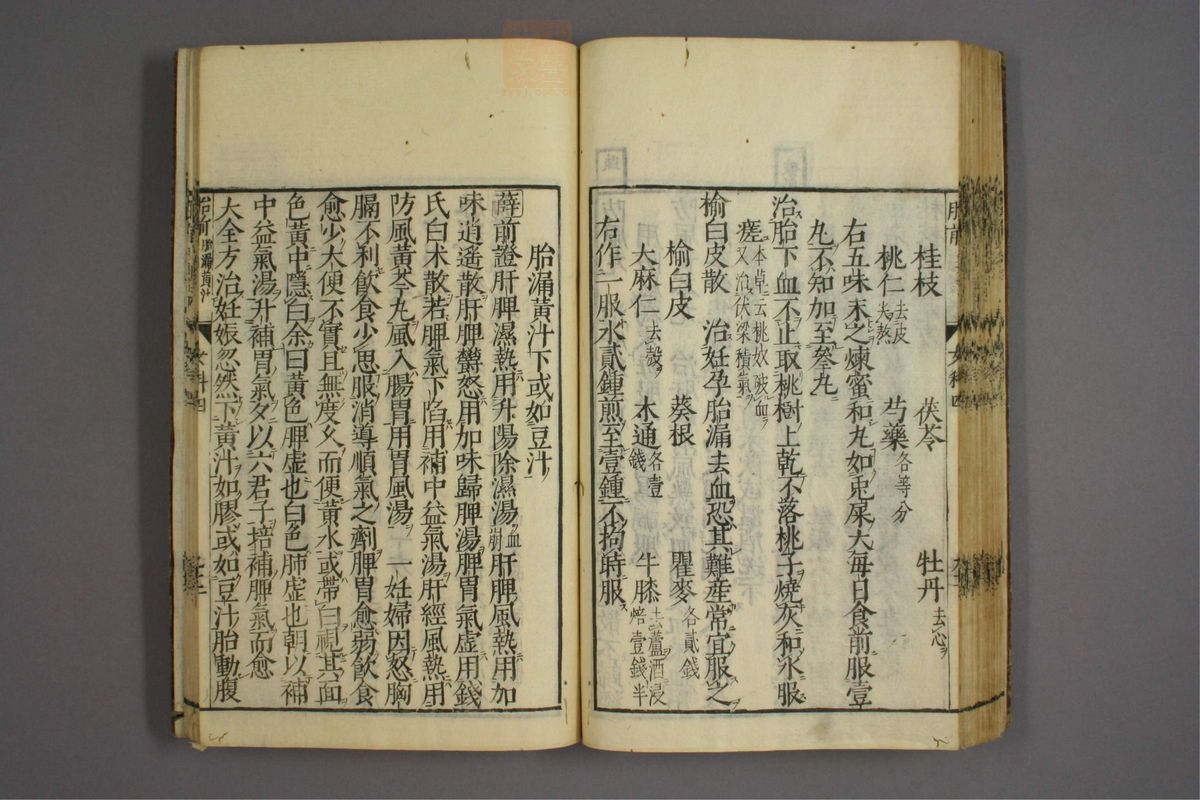 桂枝 茯苓 牡丹去心
桃仁去皮尖熬 芍藥各等分
右五味末之煉蜜和丸如兎屎大每日食前服壹
丸不知加至叄丸
治胎下血不止取桃樹上乾不落桃子燒灰和水服
瘥本草云桃奴破血又治伏梁積氣
榆白皮散 治妊孕胎漏去血恐其難産常宜服之
榆白皮 葵根 瞿麥各貳錢
大麻仁去殼 木通各壹錢 牛膝去蘆酒浸焙壹錢半
右作一服水貳鍾煎至壹鍾不拘時服
胎漏黃汁下或如豆汁
薛前證肝脾濕熱用升陽除濕湯血崩肝脾風熱用加
味逍遥散肝脾欝怒用加味歸脾湯脾胃氣虛用錢
氏白朮散若脾氣下陷用補中益氣湯肝經風熱用
防風黃芩丸風入腸胃用胃風湯 一妊婦因怒胸
膈不利飮食少思服消導順氣之劑脾胃愈弱飮食
愈少大便不實且無度久而便黃水或帶白視其面
色黃中隱白余曰黃色脾虛也白色肺虛也朝以補
中益氣湯升補胃氣夕以六君子培補脾氣而愈
大全方治妊娠忽然下黃汁如膠或如豆汁胎動腹
女科四